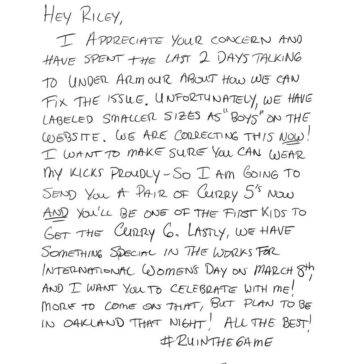 HEY RILEY,
I APPRECIATE YOUR CONCERN AND
HAVE SPENT THE LAST 2 DAYS TALKING
TO UNDER ARMOUR ABOUT HOW WE CAN
FIX THE ISSUE. UNFORTUNATELY, WE HAVE
LABELED SMALLER SIZES AS "BOYS" ON THE
WEBSITE. WE ARE CORRECTING THIS NOW!
I WANT TO MAKE SURE YOU CAN WEAR
MY KICKS PROUDLY - SO I AM GOING TO
SEND YOU A PAIR OF CURRY 5's NOW
AND YOU'LL BE ONE OF THE FIRST KIDS TO
GET THE CURRY 6. LASTLY, WE HAVE
SOMETHING SPECIAL IN THE WORKS FOR
INTERNATIONAL WOMENS DAY ON MARCH 8th,
AND I WANT YOU TO CELEBRATE WITH ME!
MORE TO COME ON THAT, BUT PLAN TO BE
IN OAKLAND THAT NIGHT! ALL THE BEST!
#RUINTHEGAME